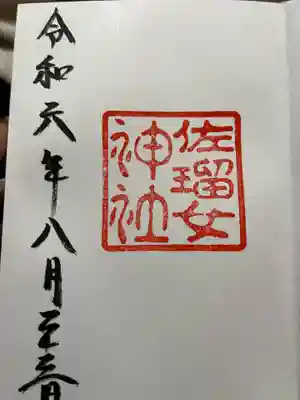 佐瑠女
神社
令和元年八月二十三日